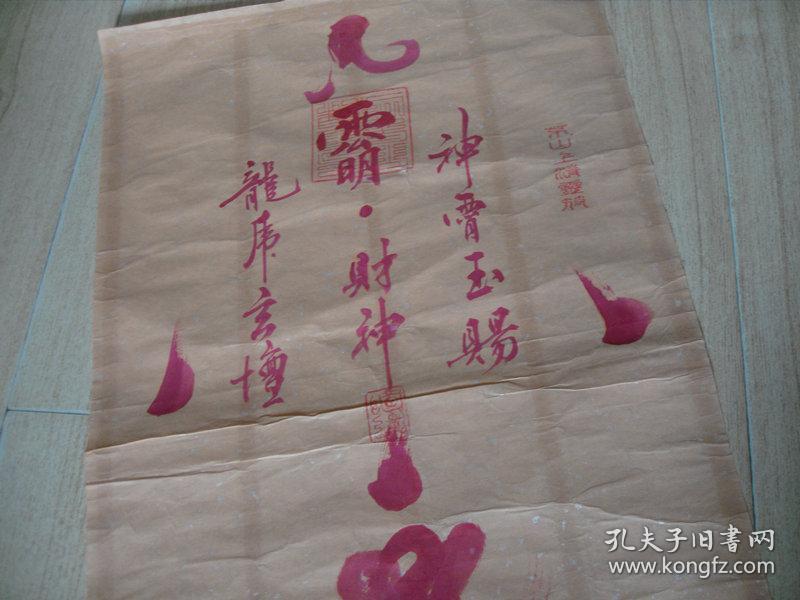 茅山上清靈
神霄玉賜
・財神
龍虎玄壇
孔夫子旧书网
www.kongfz.com